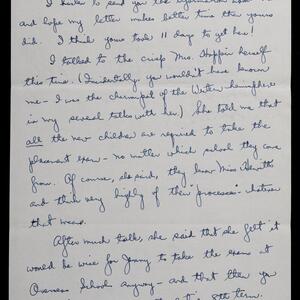 I
to send you the information now
and hope my letter makes better time than yours
did. I think yours took 11 days to get here!
I talked to the crisp Mrs. herself
this time. (Incidentally, you wouldn't have known
me - I was the charmingest of the Western hemisphere
in my several talks with her.) She told me that
all the new children are required to take the
placement exam - no matter which school they come
from. Of course, she said, they know Miss
and think very highly of their "processes" - whatever
that means.
After much talk, she said that she felt it
would be wise for Jenny to take the exams at
School anyway - and that then you
8th term.